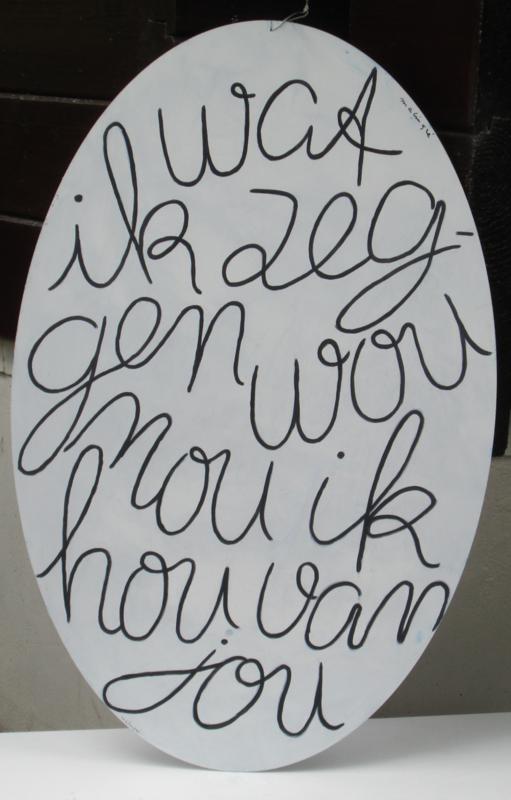 wat
ik zeg-
gen wou
nou ik
hou van
jou